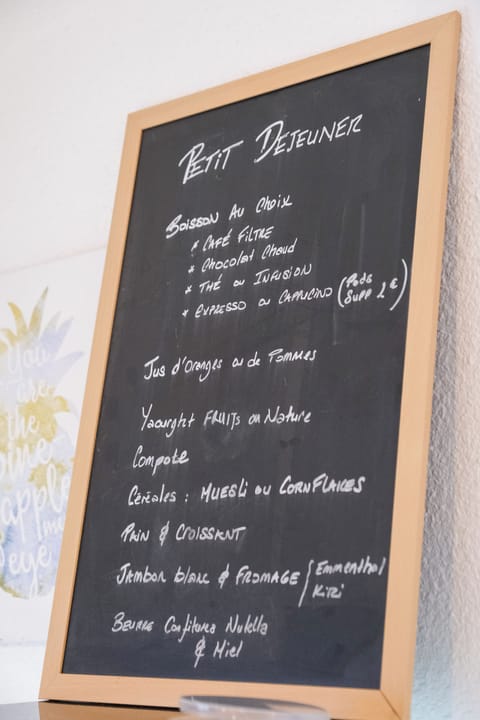 PETIT DEJEUNER
BOISSON AU CHOIX
* CAFÉ FILTRE
* Chocolat Chaud
* THÉ ou INFUSION
* EXPRESSO ou CAPPUCINO (
SUPP 2€)
JUS d'ORANGES ou de POMMES
Yaourght FRUITS ou Nature
Compote
Céréales : MUESLI ou CORNFLAKES
PAIN & CROISSANT
JAMBON blanc & FROMAGE { Emmenthal
KIRI
BEURRE Confitures Nutella
& Miel
You
are
the
pine
apple
my
eye